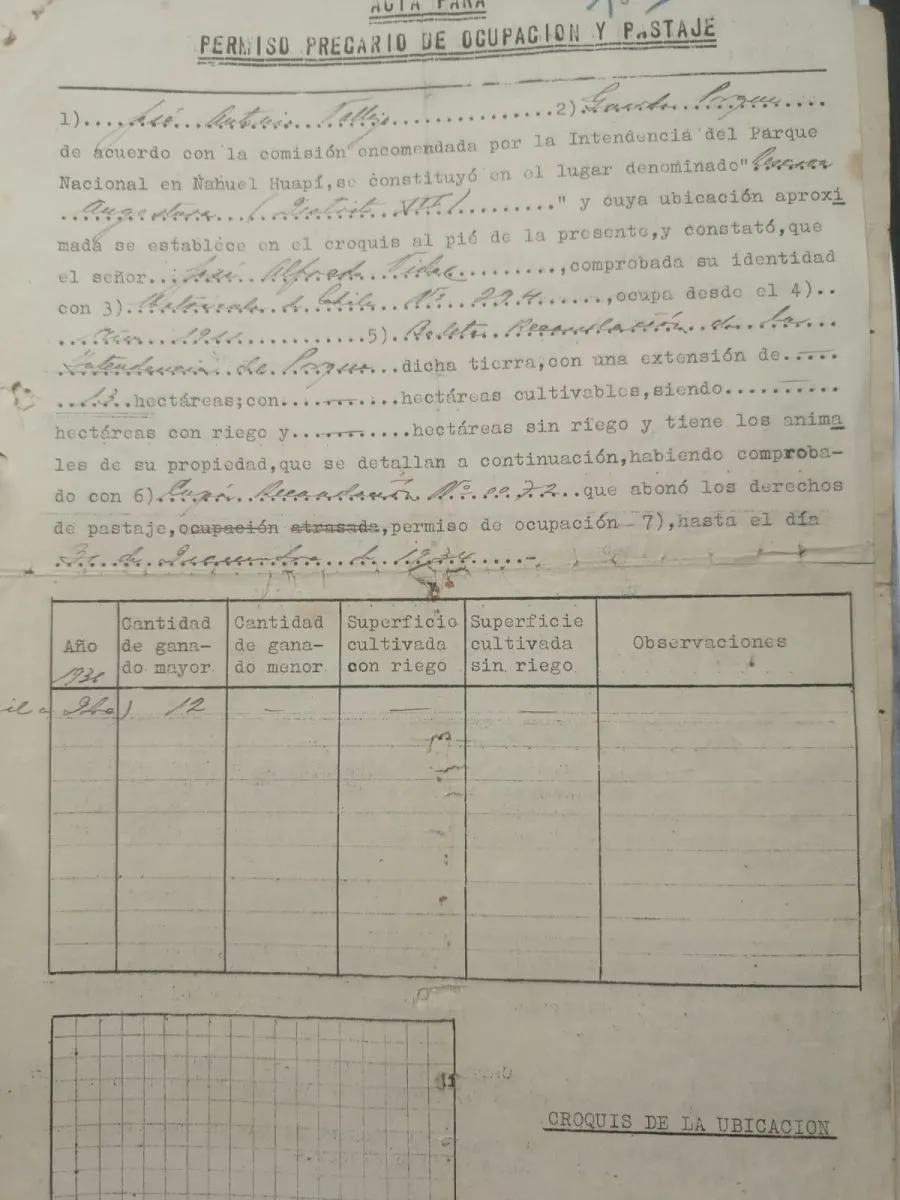 ACTA PARA
PERMISO PRECARIO DE OCUPACION Y PASTAJE
1)....José Antonio Vallejo................2) Guarda Parque....
de acuerdo con la comisión encomendada por la Intendencia del Parque
Nacional en Nahuel Huapí,se constituyó en el lugar denominado"
Angostura " y cuya ubicación aproxi
mada se establece en el croquis al pié de la presente,y constató,que
el señor...José Alfredo Vidal..........,comprobada su identidad
con 3).Matrícula de Chile Nº 224......,ocupa desde el 4)..
5).Boleto Recaudación de la
Intendencia de Parque...dicha tierra,con una extensión de.....
..13.hectáreas;con............hectáreas cultivables,siendo..........
hectáreas con riego y............hectáreas sin riego y tiene los anima
les de su propiedad,que se detallan a continuación,habiendo comproba-
do con 6) Recaudación Nº 0072..que abonó los derechos
de pastaje,ocupación atrasada,permiso de ocupación - 7),hasta el día
de 1934.....-
Año 1936
Cantidad de gana- do mayor
Cantidad de gana- do menor
Superficie cultivada con riego
Superficie cultivada sin riego
Observaciones
12 — — —
CROQUIS DE LA UBICACION